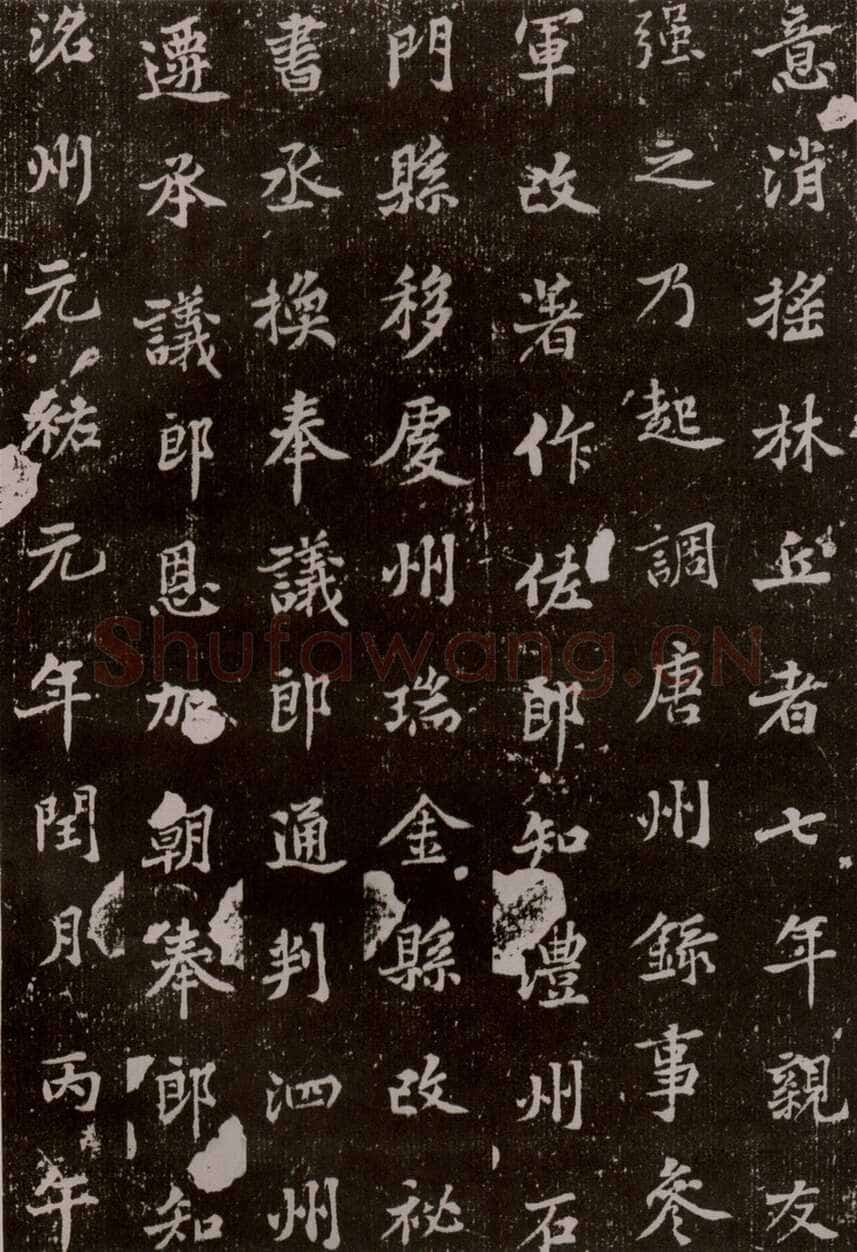 意消搖林丘者七年親友
强之乃起調唐州錄事參
軍改著作佐郎知澧州石
門縣移虔州瑞金縣改祕
書丞換奉議郎通判泗州
遷承議郎恩加朝奉郎知
洺州元祐元年閏月丙午
Shufawang.CN